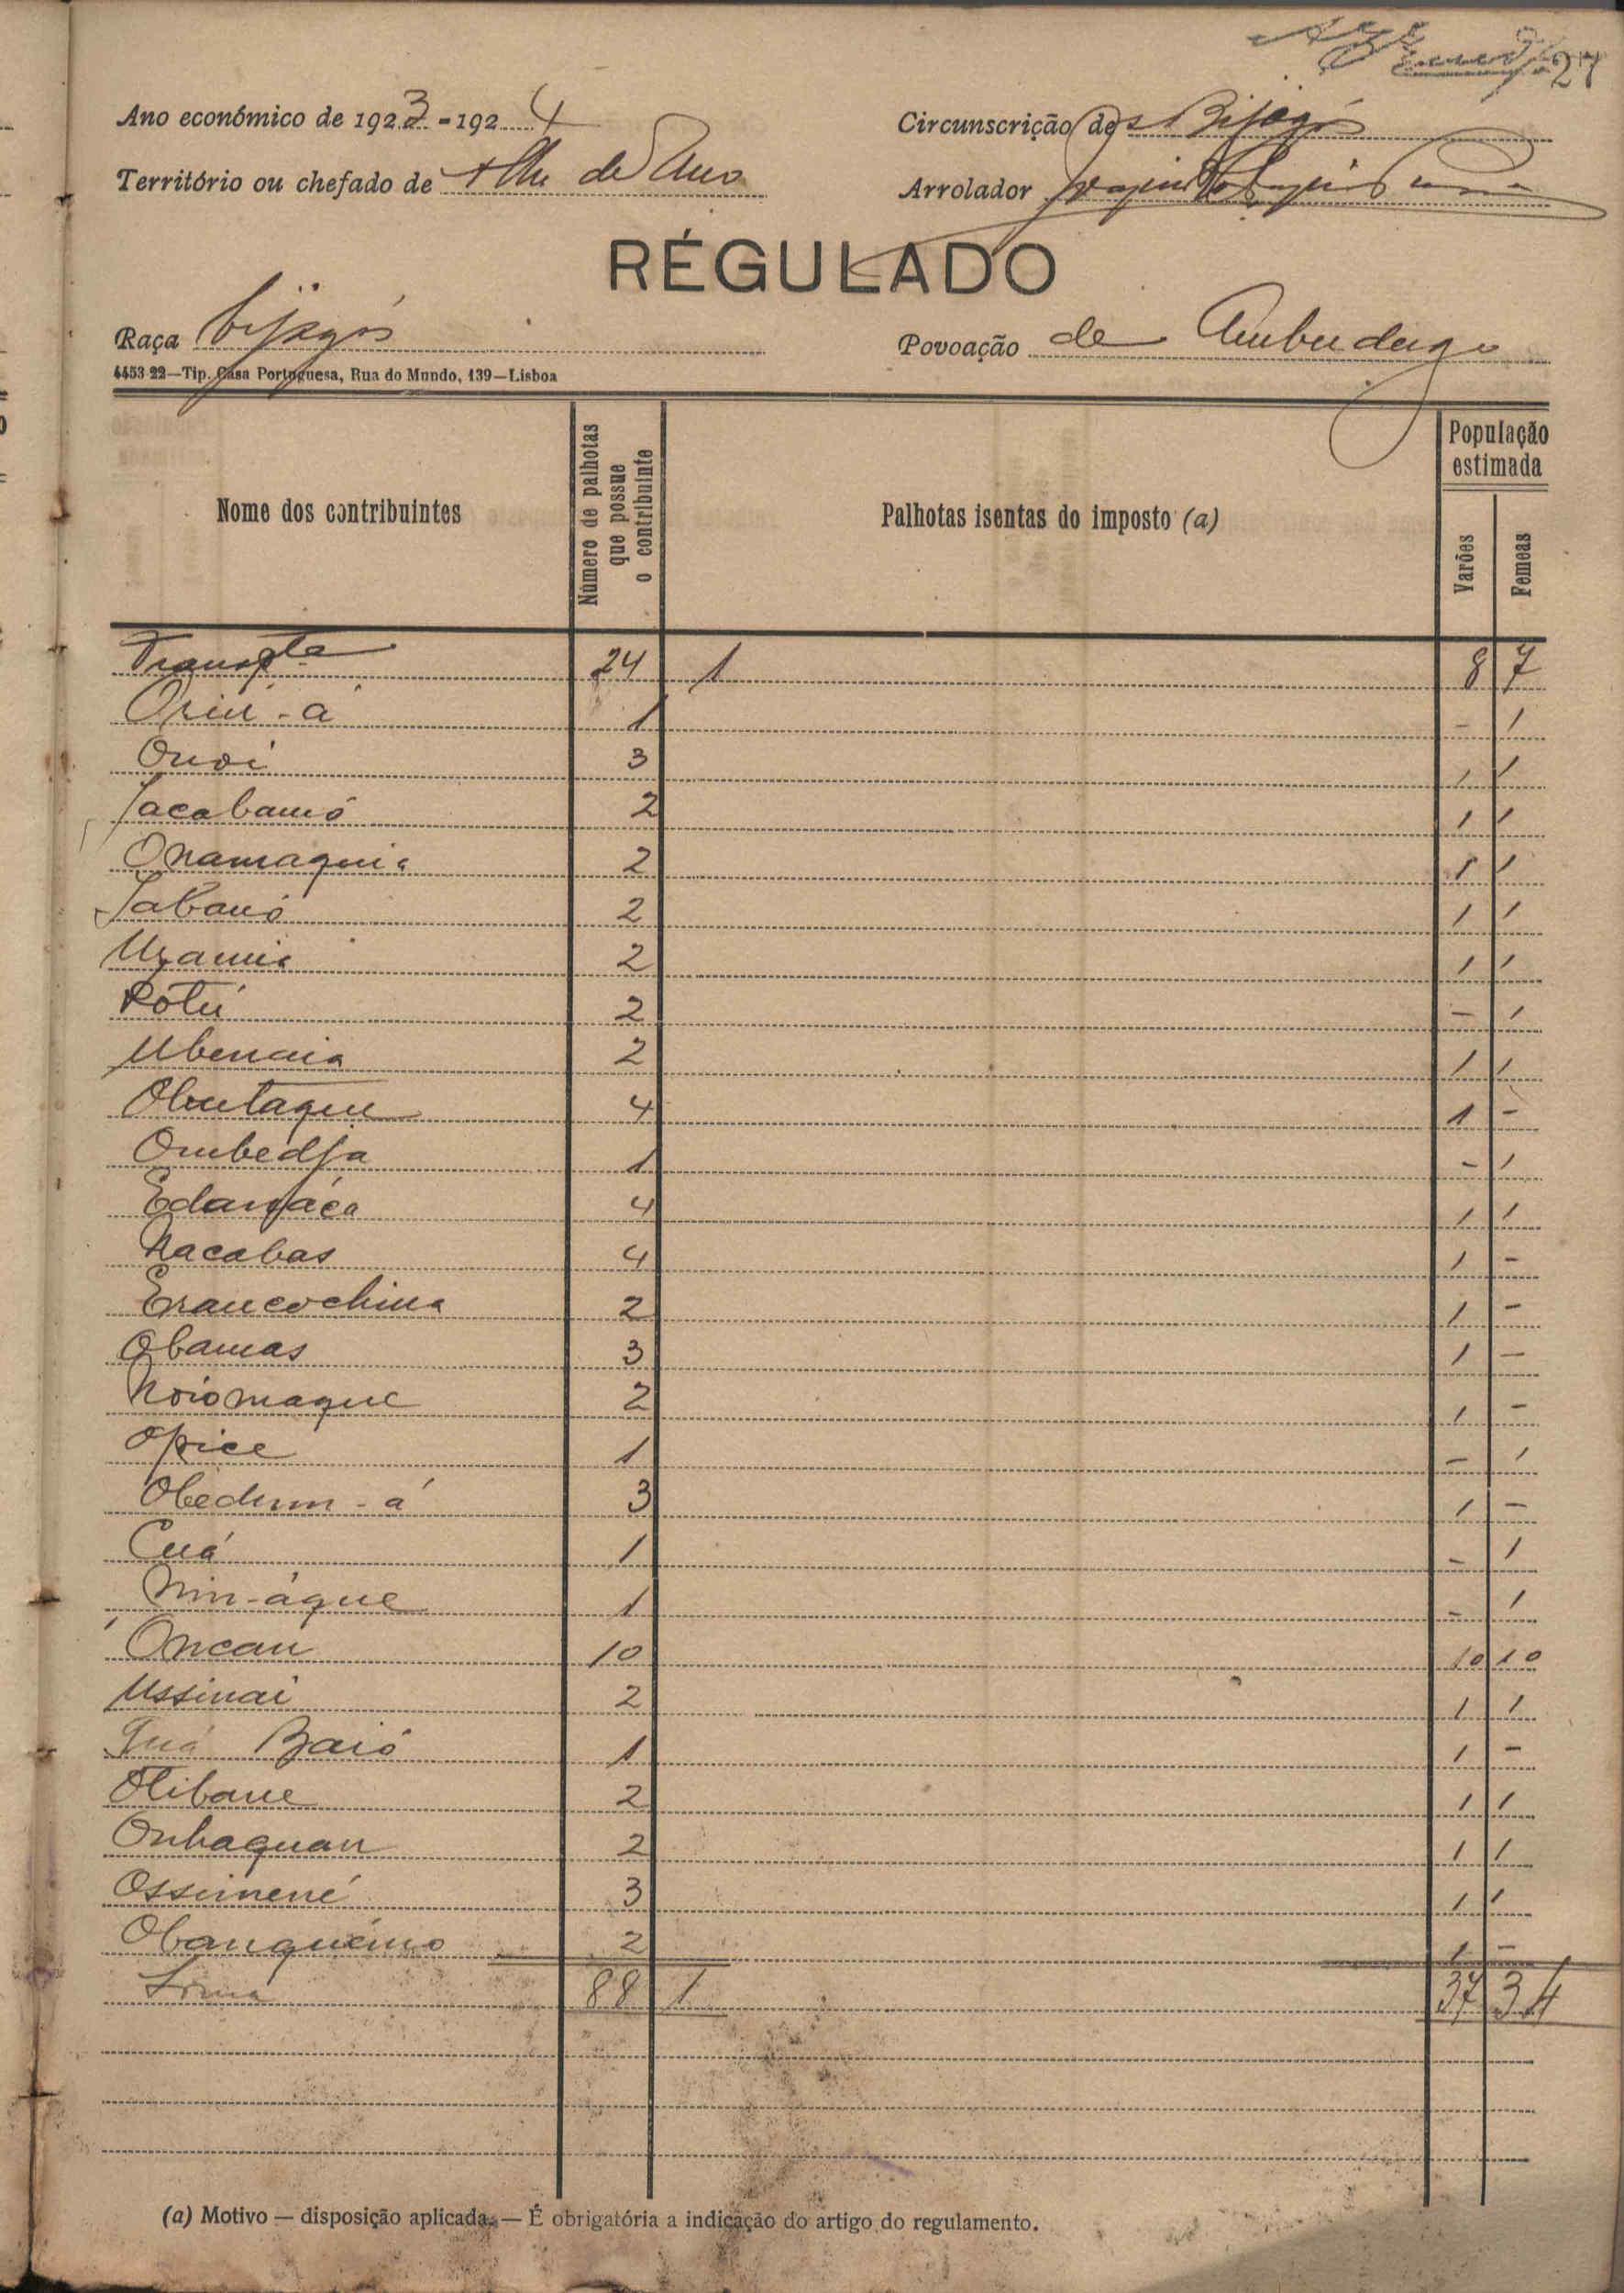 27
Ano económico de 1923-1924 Circunscrição de Bijagós
Território ou chefado de Ilha de Uno Arrolador
RÉGULADO
Raça bijagós Povoação de Ambuduga
4453 22—Tip. Casa Portuguesa, Rua do Mundo, 139—Lisboa
Nome dos contribuintes Número de palhotas que possue o contribuinte Palhotas isentas do imposto (a) População estimada Varões Femeas
Transpte 24 1 8 7
Oriu-á 1 - 1
Onoi 3 1 1
Jacabamó 2 1 1
Onamaquia 2 1 1
Jabanó 2 1 1
Uzamia 2 1 1
Rotú 2 - 1
Ubenaia 2 1 1
Obutaque 4 1 -
Ombedja 1 - 1
Edanjáca 4 1 1
Nacabas 4 1 -
Erancochina 2 1 -
Obamas 3 1 -
Noiomaque 2 1 -
Opice 1 - 1
Obedum-á 3 1 -
Cuá 1 - 1
Nin-áque 1 - 1
Oncan 10 10 10
Ussinai 2 1 1
Baió 1 1 -
Otibane 2 1 1
Onbaquan 2 1 1
Ossimené 3 1 1
Obanquémo 2 1 -
Soma 88 1 37 34
(a) Motivo — disposição aplicada. — É obrigatória a indicação do artigo do regulamento.